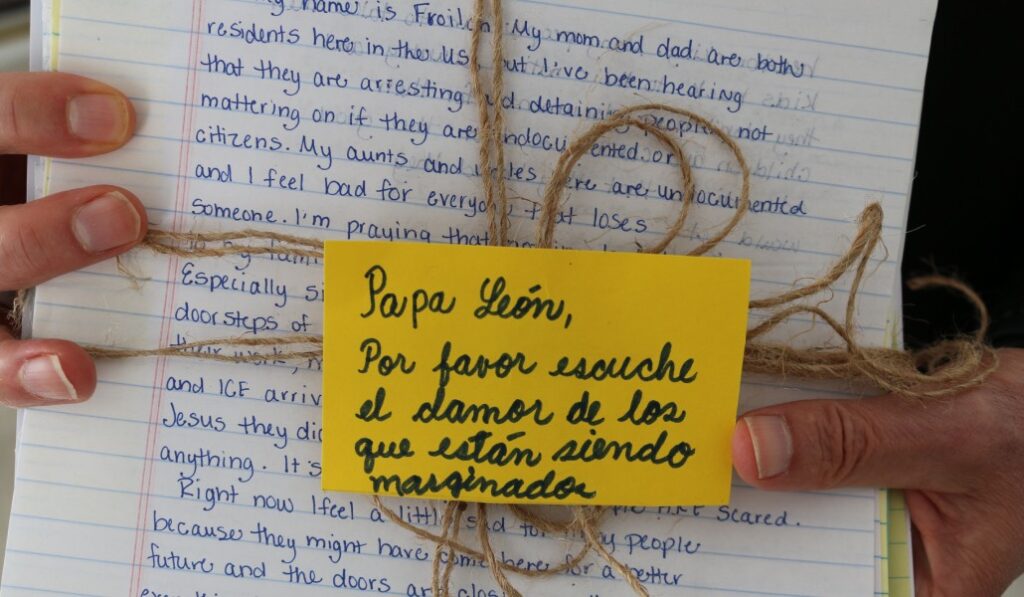 name is Froilan. My mom and dad are both
residents here in the US, but I've been hearing
that they are arresting and detaining people not
mattering on if they are undocumented or
citizens. My aunts and uncles here are undocumented
and I feel bad for everyone that loses
someone. I'm praying that
to my
Especially si
doorsteps of
their work,
and ICE arriv
Jesus they did
anything. It's are scared.
Right now I feel a little sad for many people
because they might have come here for a better
future and the doors are
Papa León,
Por favor escuche
el clamor de los
que están siendo
marginados